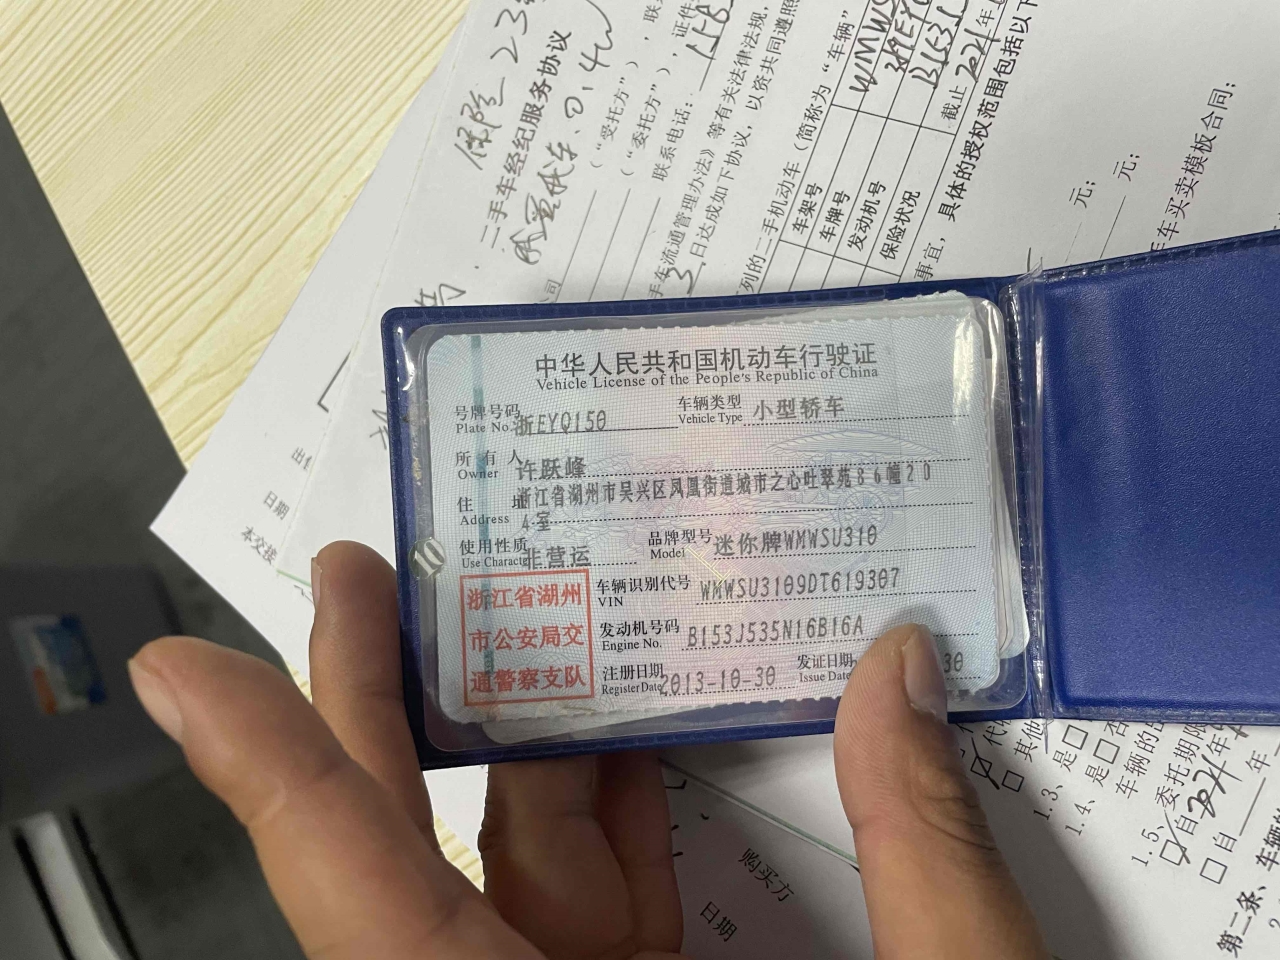 中华人民共和国机动车行驶证
Vehicle License of the People's Republic of China
号牌号码 浙EYQ150 车辆类型 小型轿车
Plate No. Vehicle Type
所有人 许跃峰
Owner
住址 浙江省湖州市吴兴区凤凰街道城市之心吐翠苑86幢20
Address 4室
使用性质 非营运 品牌型号 迷你牌WMWSU310
Use Character Model
浙江省湖州
市公安局交
通警察支队
车辆识别代号 WMWSU3109DT619307
VIN
发动机号码 B153J535N16B16A
Engine No.
注册日期 2013-10-30 发证日期 30
Register Date Issue Date
保险
二手车经纪服务协议
（“受托方”），联
（“委托方”），证件
联系电话：
车流通管理办法》等有关法律法规，
日达成如下协议，以资共同遵照
列的二手机动车（简称为“车辆”
车架号 WMWS
车牌号
发动机号 B153J
保险状况 截止 2021年
事宜，具体的授权范围包括以下
元；
元；
车买卖模板合同：
公司
出售
日期
本交接
其他
1.3、是□
1.4、是□否
车辆的
1.5、委托期限
自2021年
□自 年
第二条、车辆
购买方
日期